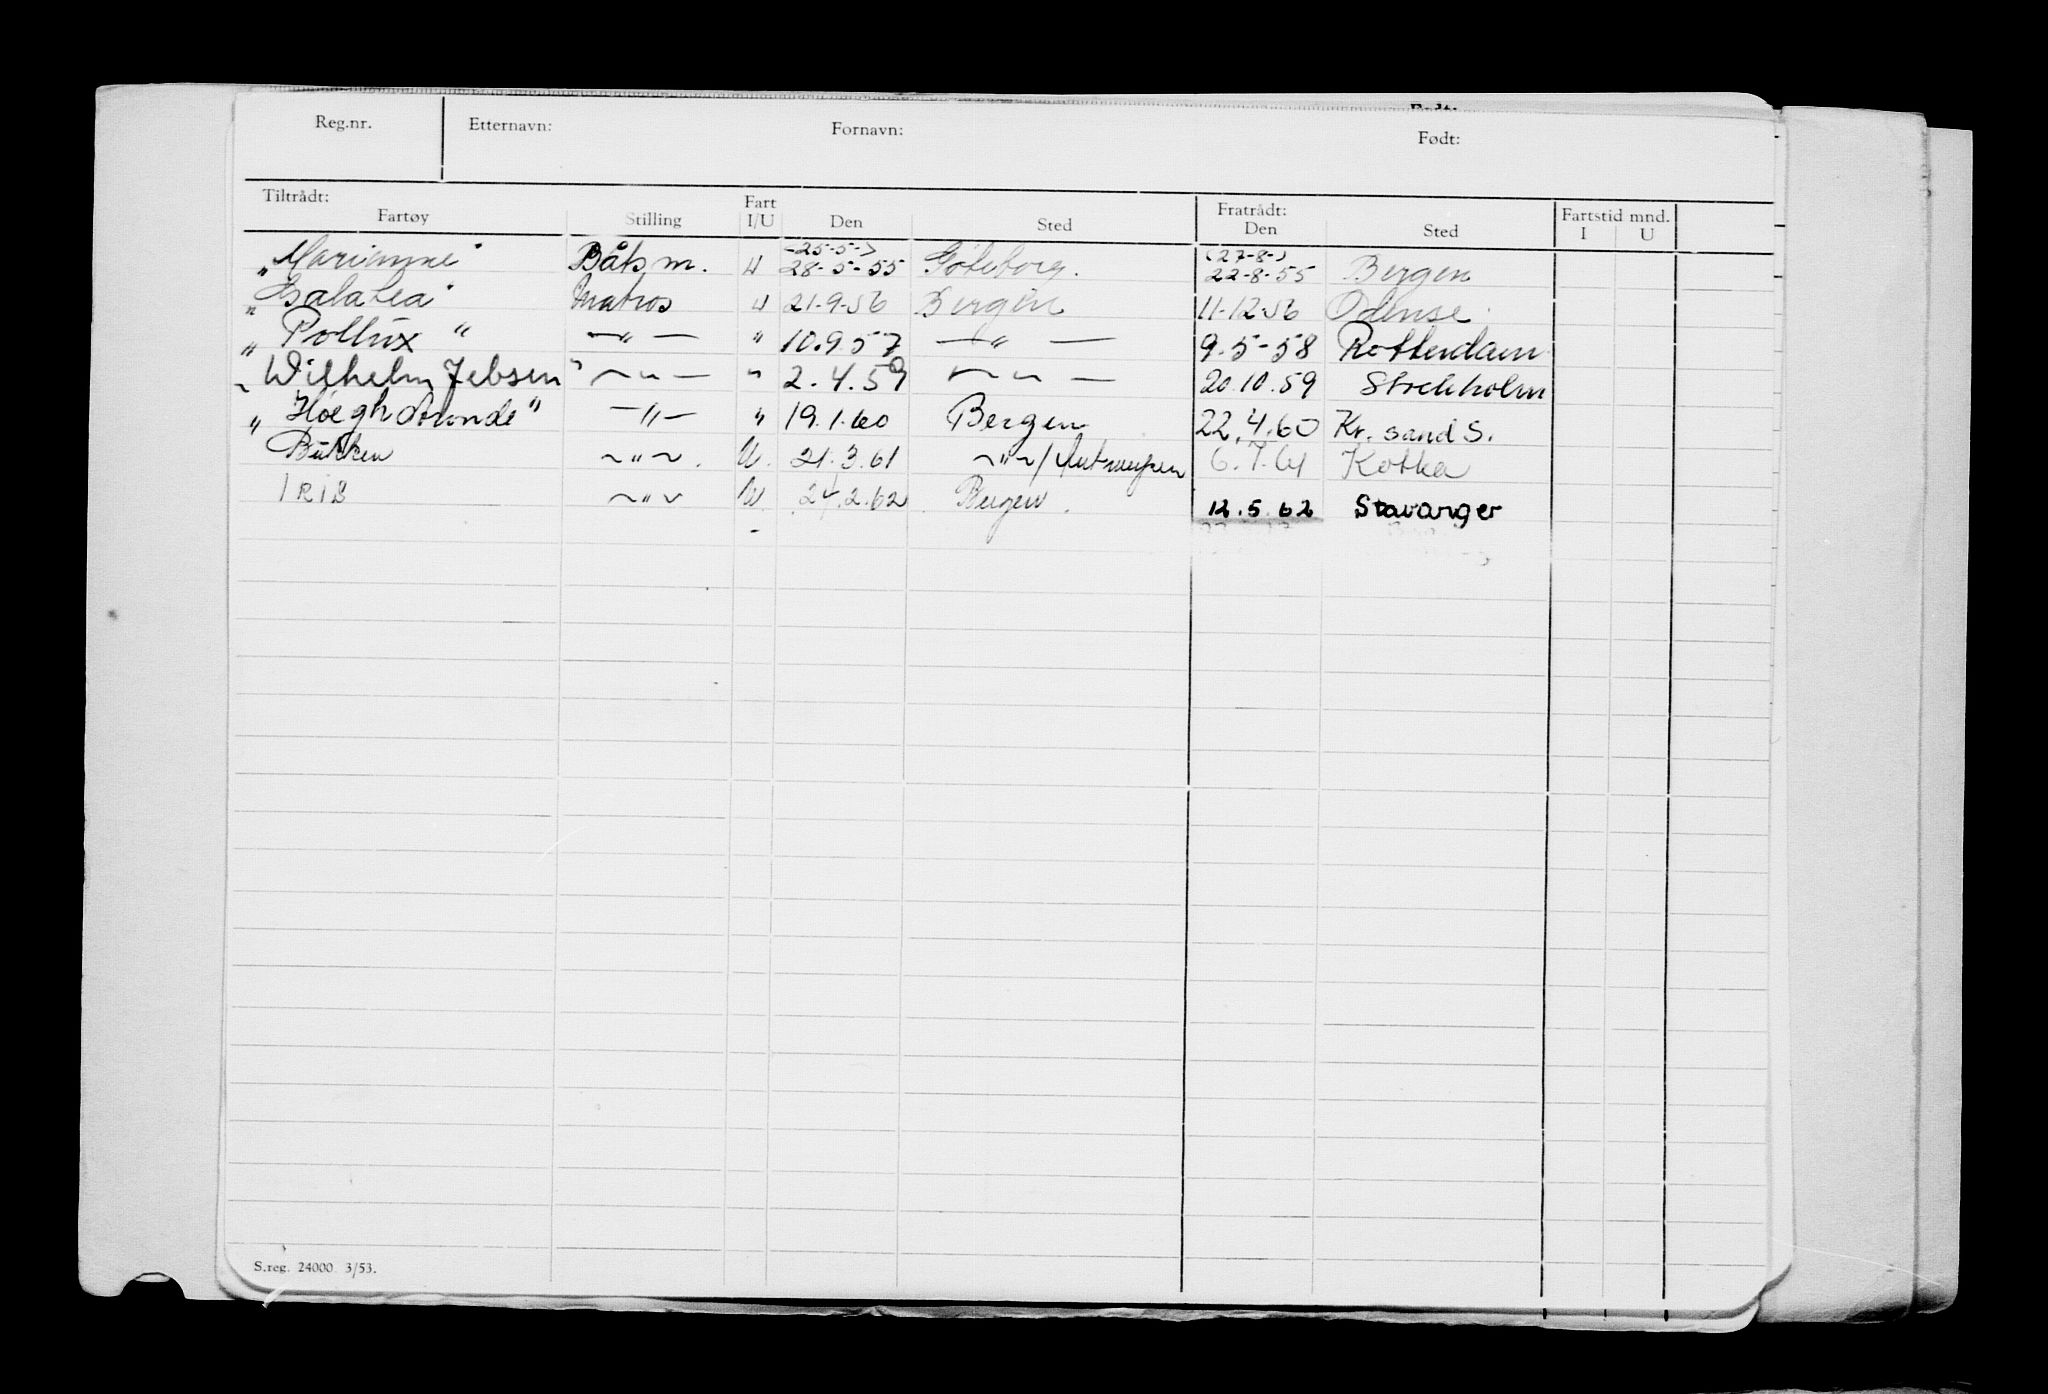 Født:
Reg.nr. Etternavn: Fornavn: Født:
Tiltrådt: Fartøy Stilling Fart I/U Den Sted Fratrådt: Den Sted Fartstid mnd. I U
(25-5-) (27-8-)
"Marianne" Båtsm. U 28-5-55 Göteborg. 22-8-55 Bergen
"Galatea" Matros U 21.9.56 Bergen 11-12-56 Odense.
"Pollux" —"— " 10.9.57 —"— 9.5-58 Rotterdam
"Wilhelm Jebsen" —"— " 2.4.59 —"— 20.10.59 Stockholm
"Høegh Aronde" —"— " 19.1.60 Bergen 22.4.60 Kr. sand S.
Bükken —"—. U. 21.3.61 —"—/Antwerpen 6.7.61 Kotka
IRIS —"— U. 24.2.62 Bergen. 12.5.62 Stavanger
S.reg. 24000 3/53.